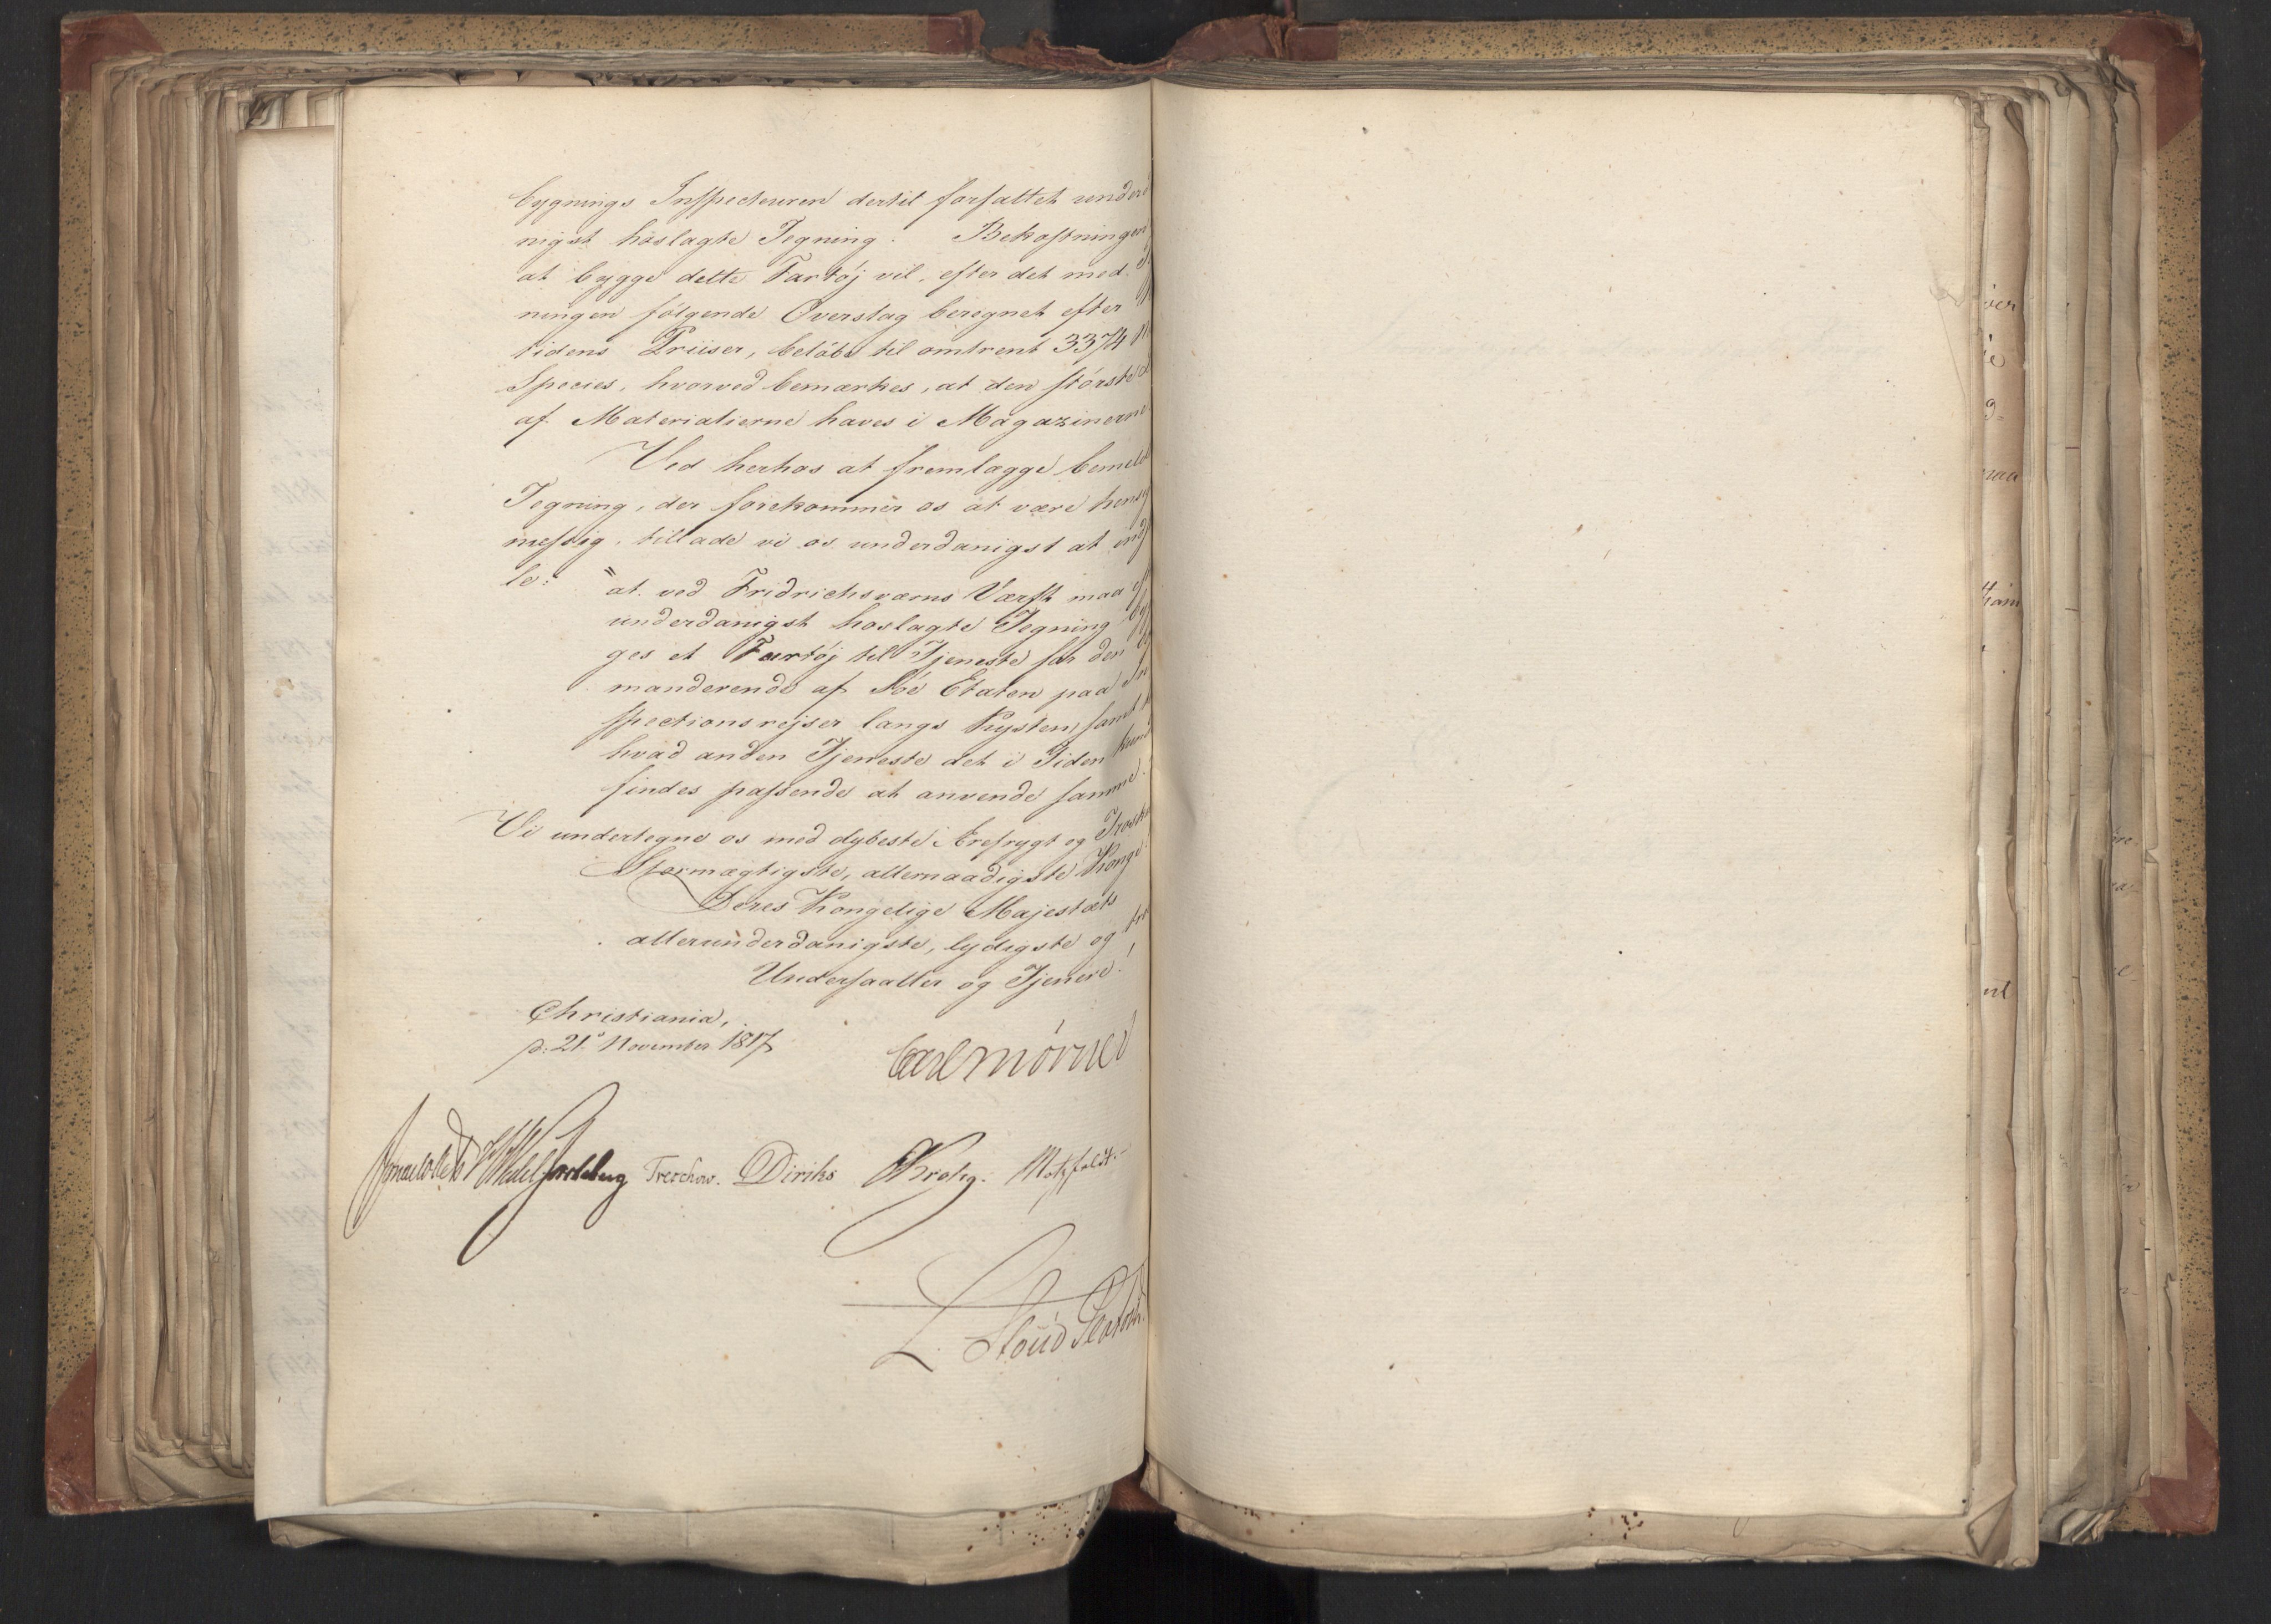 bygnings Inspecteuren dertil forfattet under
nigst hoslagte Tegning. Bekostningen
at bygge dette Fartøj vil, efter det med
ningen følgende Overslag beregnet efter
tidens Priiser, beløbe til omtrent 3374
Species, hvorved bemærkes, at den største
af Materialierne haves i Magazinerne
Ved herhos at fremlægge bemeld
Tegning, der forekommer os at være hensig
messig, tillade vi os underdanigst at indst
le: "at ved Fridrichsværns Værft maa
underdanigst hoslagte Tegning byg
ges et Fartøj til Tjeneste for den
manderende af Søe Etaten paa In
spectionsrejser langs Kysten, samt
hvad anden Tjeneste det i Tiden kund
findes passende at anvende samme.
Vi undertegne os med dybeste Ærefrygt og Troska
Stormægtigste, allernaadigste Konge!
Deres Kongelige Majestæts
allerunderdanigste, lydigste og tro
Undersaatter og Tjenere!
Christiania,
d: 21. November 1817
Carl Mörner
Sommerhielm Wedel Jarlsberg Treschow. Diriks Krohg. Motzfeldt.
L. Stoud Platou